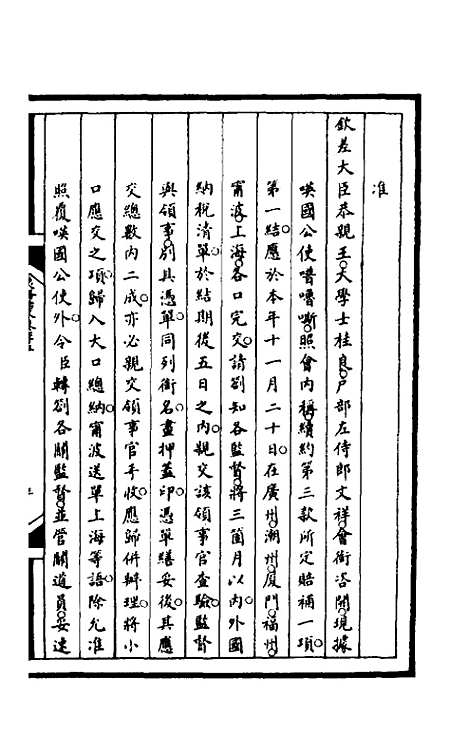 准
欽差大臣恭親王大學士桂良戶部左侍郎文祥會銜咨開現據
𠸄國公使嚕嘶照會內稱續約第三款所定賠補一項
第一結應於本年十一月二十日在廣州潮州廈門福州
甯波上海各口完交請劄知各監督將三箇月以內外國
納稅清單於結期後五日之內親交該領事官查驗監督
與領事別具憑單同列銜名畫押蓋印憑單繕妥後其應
交總數內二成亦必親交領事官手收應歸併辦理將小
口應交之項歸入大口總納甯波送單上海等語除允准
照覆𠸄國公使外令臣轉劄各關監督並管關道員妥速